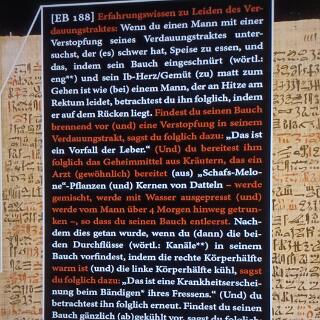 [EB 188] Erfahrungswissen zu Leiden des Ver-
dauungstraktes: Wenn du einen Mann mit einer
Verstopfung seines Verdauungstraktes unter-
suchst, der (es) schwer hat, Speise zu essen, und
das, indem sein Bauch eingeschnürt (wörtl.:
eng**) und sein Ib-Herz/Gemüt (zu) matt zum
Gehen ist wie (bei) einem Mann, der an Hitze am
Rektum leidet, betrachtest du ihn folglich, indem
er auf dem Rücken liegt. Findest du seinen Bauch
brennend vor (und) eine Verstopfung in seinem
Verdauungstrakt, sagst du folglich dazu: „Das ist
ein Vorfall der Leber.“ (Und) du bereitest ihm
folglich das Geheimmittel aus Kräutern, das ein
Arzt (gewöhnlich) bereitet (aus) „Schafs-Melo-
ne“-Pflanzen (und) Kernen von Datteln – werde
gemischt, werde mit Wasser ausgepresst (und)
werde vom Mann über 4 Morgen hinweg getrun-
ken –, so dass du seinen Bauch entleerst. Nach-
dem dies getan wurde, wenn du (dann) die bei-
den Durchflüsse (wörtl.: Kanäle**) in seinem
Bauch vorfindest, indem die rechte Körperhälfte
warm ist (und) die linke Körperhälfte kühl, sagst
du folglich dazu: „Das ist eine Krankheitserschei-
nung beim Bändigen* ihres Fressens.“ (Und) du
betrachtest ihn folglich erneut. Findest du seinen
Bauch gänzlich (ab)gekühlt vor, sagst du folglich